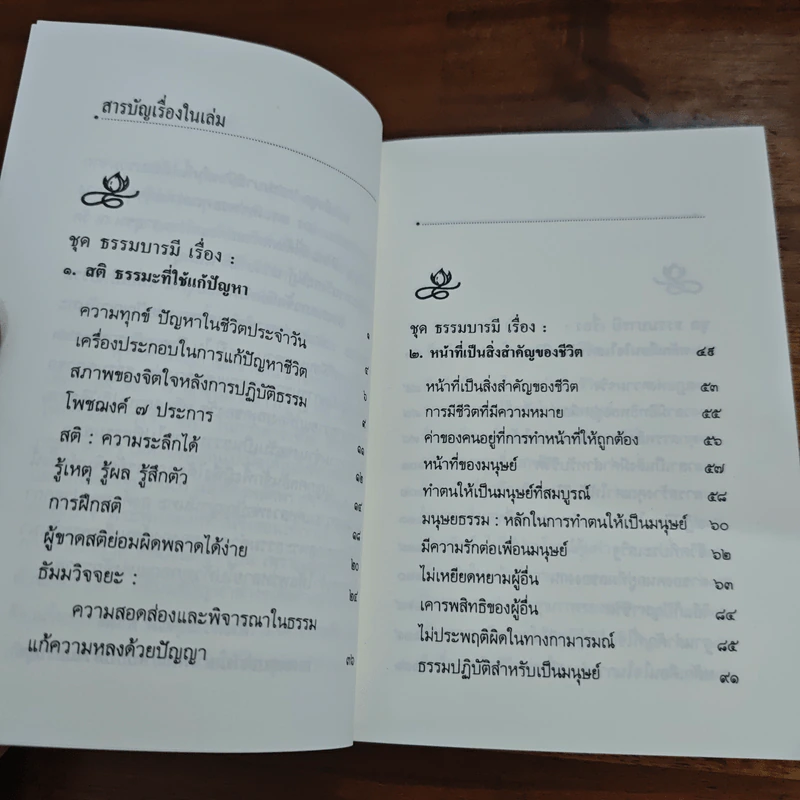 สารบัญเรื่องในเล่ม
ชุด ธรรมบารมี เรื่อง :
๑. สติ ธรรมะที่ใช้แก้ปัญหา ๑
ความทุกข์ ปัญหาในชีวิตประจำวัน ๔
เครื่องประกอบในการแก้ปัญหาชีวิต ๖
สภาพของจิตใจหลังการปฏิบัติธรรม ๙
โพชฌงค์ ๗ ประการ ๑๑
สติ : ความระลึกได้ ๑๒
รู้เหตุ รู้ผล รู้สึกตัว ๑๔
การฝึกสติ ๑๘
ผู้ขาดสติย่อมผิดพลาดได้ง่าย ๒๐
ธัมมวิจจยะ : ๒๔
ความสอดส่องและพิจารณาในธรรม
แก้ความหลงด้วยปัญญา ๓๖
ชุด ธรรมบารมี เรื่อง :
๒. หน้าที่เป็นสิ่งสำคัญของชีวิต ๔๙
หน้าที่เป็นสิ่งสำคัญของชีวิต ๕๓
การมีชีวิตที่มีความหมาย ๕๕
ค่าของคนอยู่ที่การทำหน้าที่ให้ถูกต้อง ๕๖
หน้าที่ของมนุษย์ ๕๗
ทำตนให้เป็นมนุษย์ที่สมบูรณ์ ๕๘
มนุษยธรรม : หลักในการทำตนให้เป็นมนุษย์ ๖๐
มีความรักต่อเพื่อนมนุษย์ ๖๒
ไม่เหยียดหยามผู้อื่น ๖๓
เคารพสิทธิของผู้อื่น ๘๔
ไม่ประพฤติผิดในทางกามารมณ์ ๘๕
ธรรมปฏิบัติสำหรับเป็นมนุษย์ ๙๑